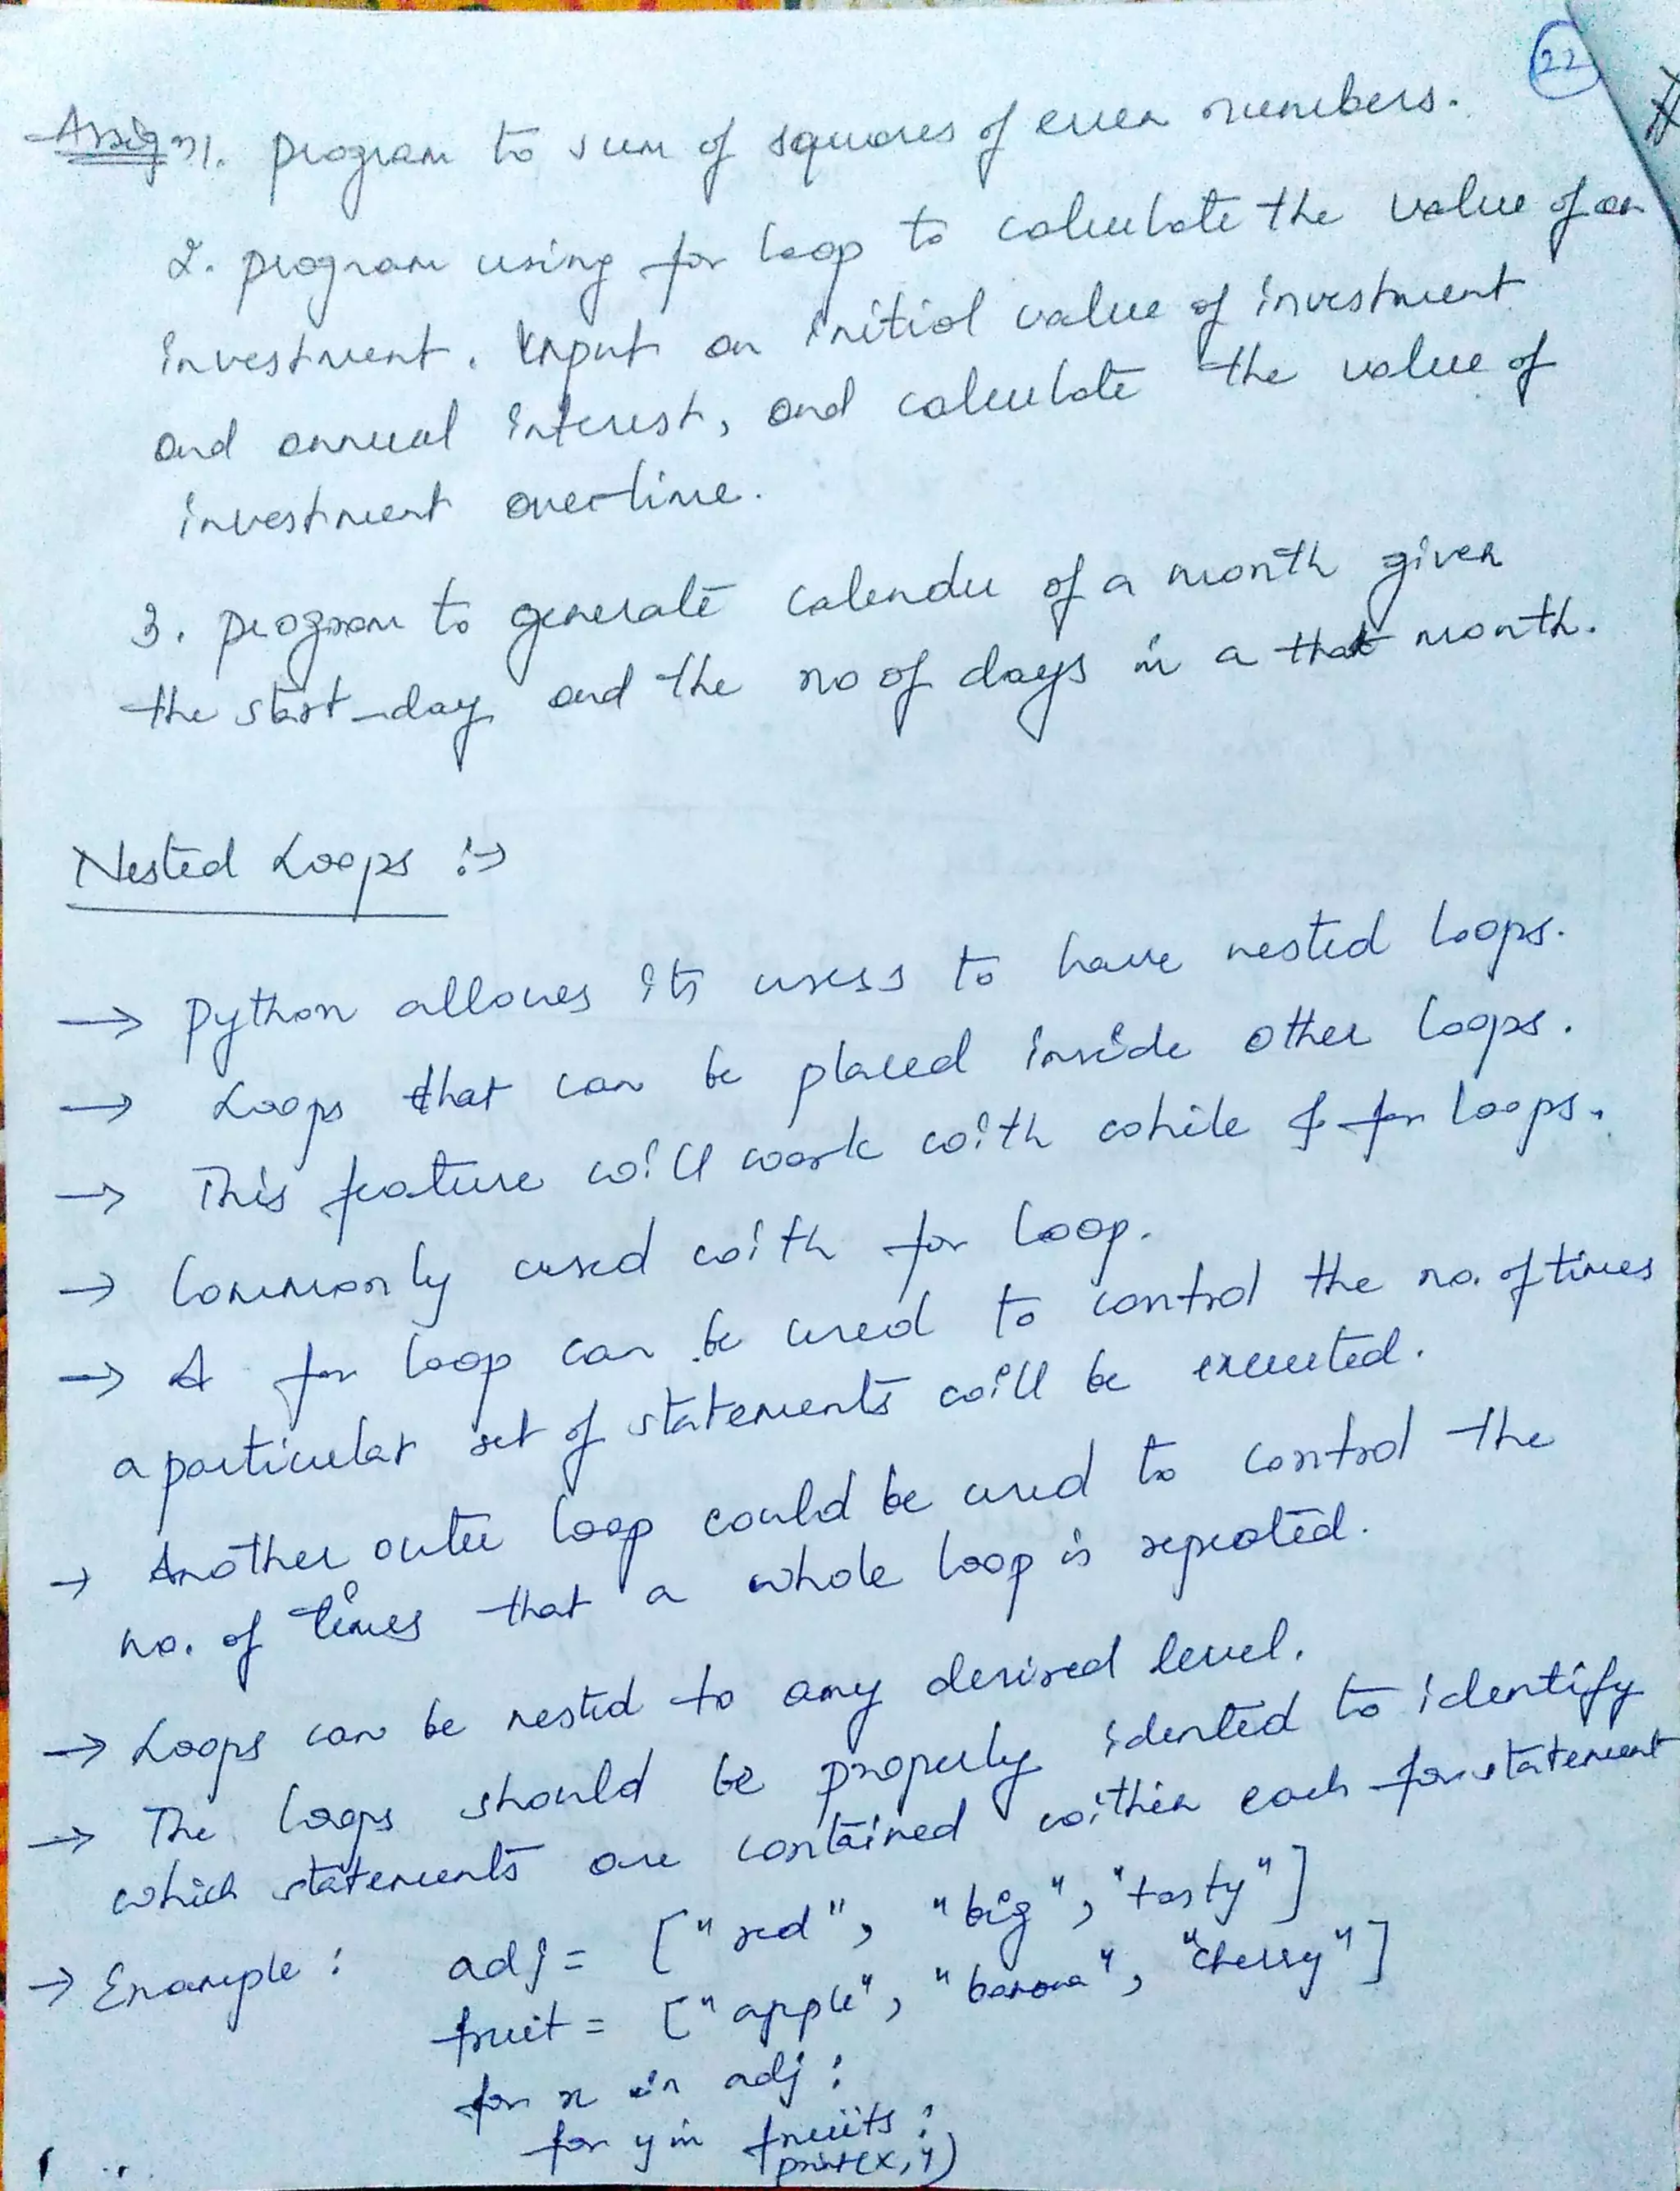 22
Assign 1. program to sum of squares of even numbers.
2. program using for loop to calculate the value of an
investment. Input an initial value of investment
and annual interest, and calculate the value of
investment overtime.
3. program to generate calender of a month given
the start_day and the no of days in a that month.
Nested Loops :→
→ Python allows its users to have nested loops.
→ Loops that can be placed inside other loops.
→ This feature will work with while & for loops.
→ Commonly used with for loop.
→ A for loop can be used to control the no. of times
a particular set of statements will be executed.
→ Another outer loop could be used to control the
no. of times that a whole loop is repeated.
→ Loops can be nested to any desired level.
→ The loops should be properly idented to identify
which statements are contained within each for statement
→ Example : adj = ["red", "big", "tasty"]
fruit = ["apple", "banana", "cherry"]
for x in adj :
for y in fruits :
print(x, y)